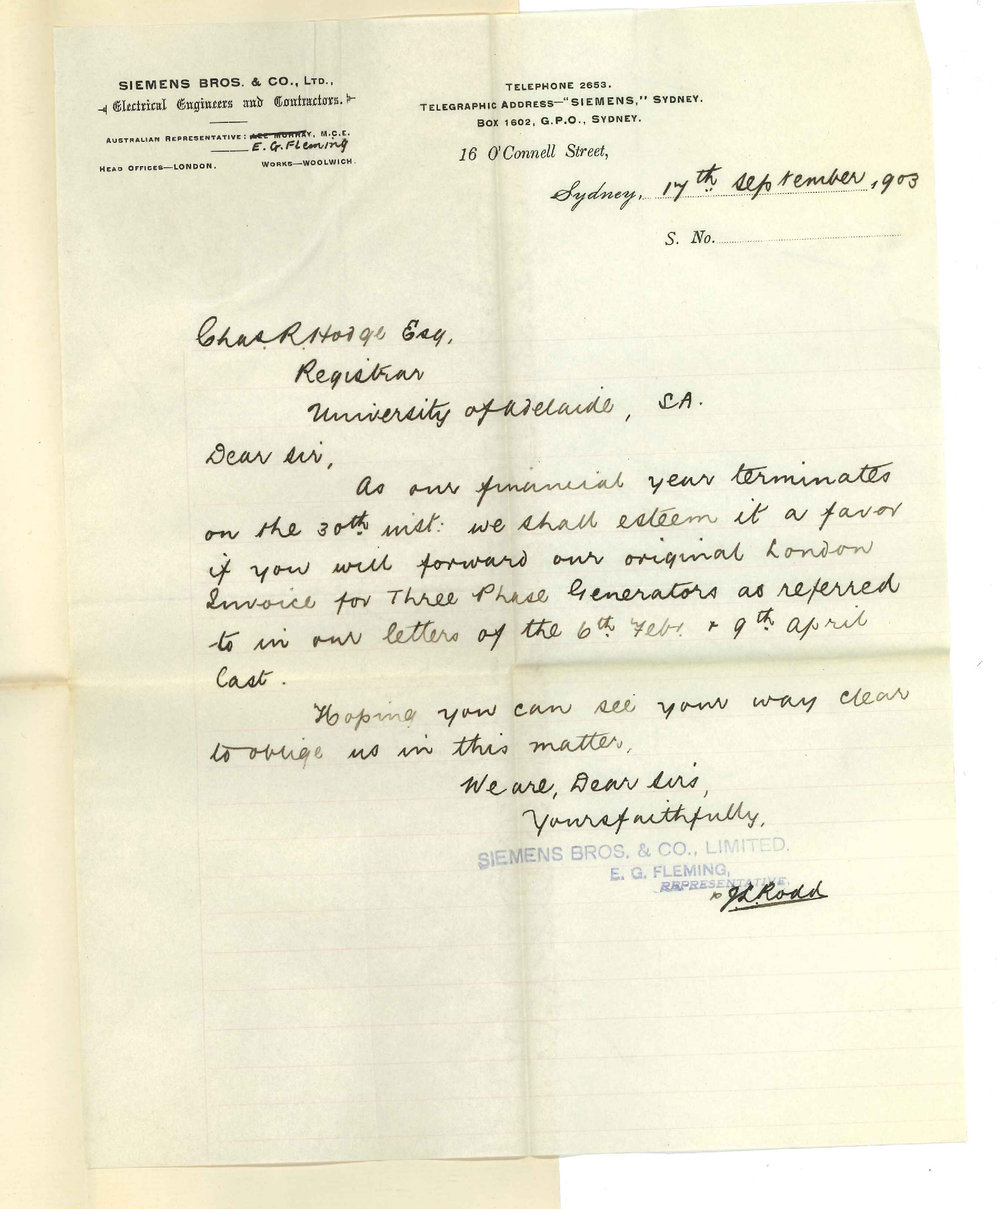 SIEMENS BROS. & CO., LTD.,
Electrical Engineers and Contractors.
AUSTRALIAN REPRESENTATIVE: LEE MURRAY, M.C.E.
E. G. Fleming
HEAD OFFICES—LONDON. WORKS—WOOLWICH.
TELEPHONE 2653.
TELEGRAPHIC ADDRESS—"SIEMENS," SYDNEY.
BOX 1602, G.P.O., SYDNEY.
16 O'Connell Street,
Sydney, 17th September, 1903
S. No.
Chas. R. Hodge Esq,
Registrar
University of Adelaide, SA.
Dear Sir,
As our financial year terminates
on the 30th inst: we shall esteem it a favor
if you will forward our original London
Invoice for Three Phase Generators as referred
to in our letters of the 6th Febr. & 9th April
last.
Hoping you can see your way clear
to oblige us in this matter,
We are, Dear Sirs,
Yours faithfully,
SIEMENS BROS. & CO., LIMITED.
E. G. FLEMING,
REPRESENTATIVE.
J.L. Rodd